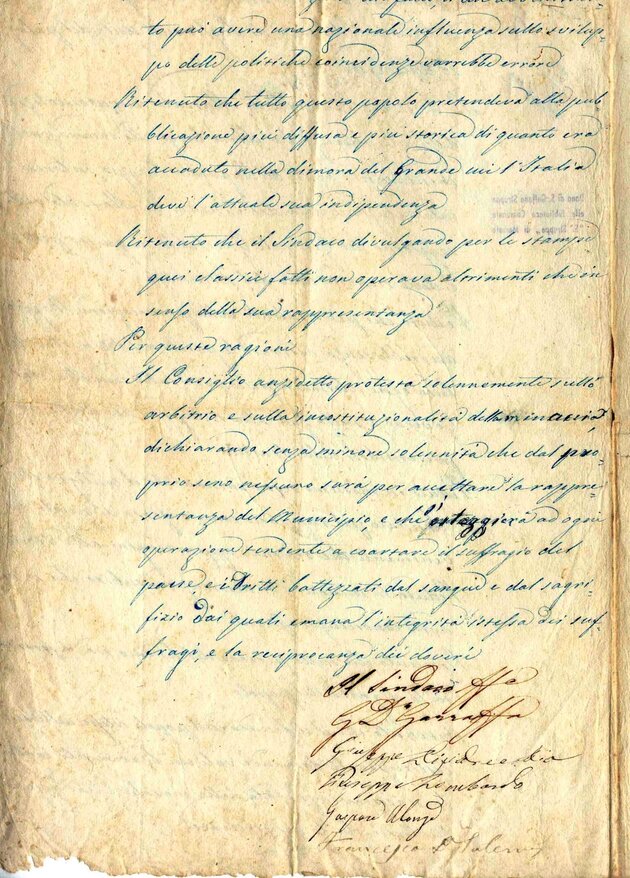 to può avere una nazionale influenza sullo svilup-
po delle politiche coincidenze varrebbe errore
Ritenuto che tutto questo popolo pretendeva alla pub-
blicazione più diffusa e più storica di quanto era
accaduto nella dimora del Grande cui l'Italia
deve l'attuale sua indipendenza
Ritenuto che il Sindaco divulgando per le stampe
quei classici fatti non operava altrimenti che in
senso della sua rappresentanza
Per queste ragioni
Il Consiglio anzidetto protesta solennemente sullo
arbitrio e sulla incostituzionalità della minaccia,
dichiarando senza minore solennità che dal pro-
prio seno nessuno sarà per accettare la rappre-
sentanza del Municipio, e che ad ogni
operazione tendente a coartare il suffragio del
paese, e i dritti battezzati dal sangue e dal sagri-
fizio dai quali emana l'integrità istessa dei suf-
fragi, e la reciprocanza dei doveri
Il Sindaco
Garraffa
Giuseppe
Giuseppe Lombardo
Gaspare Alonge
Francesco